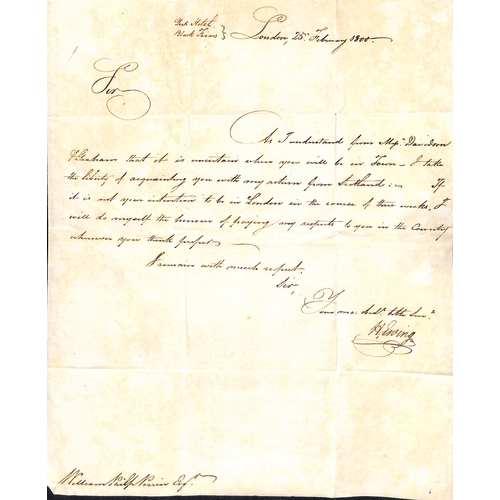 York Hotel
Black Friars } London, 25 February 1800
Sir
As I understand from Messrs Davidson
& Graham that it is uncertain when you will be in Town - I take
the liberty of acquainting you with my return from Scotland: - If
it is not your intention to be in London in the course of three weeks, I
will do myself the honour of paying my respects to you in the Country
whenever you think proper
I remain with much respect.
Sir,
Your mo: Obedt hble Servt
W Ewing
William Philp Perrin Esqr